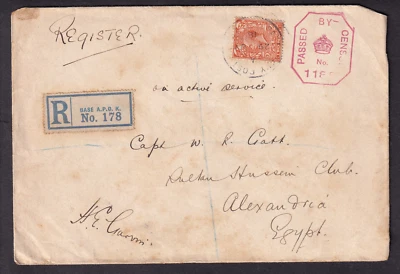 REGISTER.
PASSED BY CENS
No.
on active service.
R
BASE A.P.O.
No. 178
Capt W. R. Gatt.
Sultan Hussein Club.
Alexandria
Egypt.